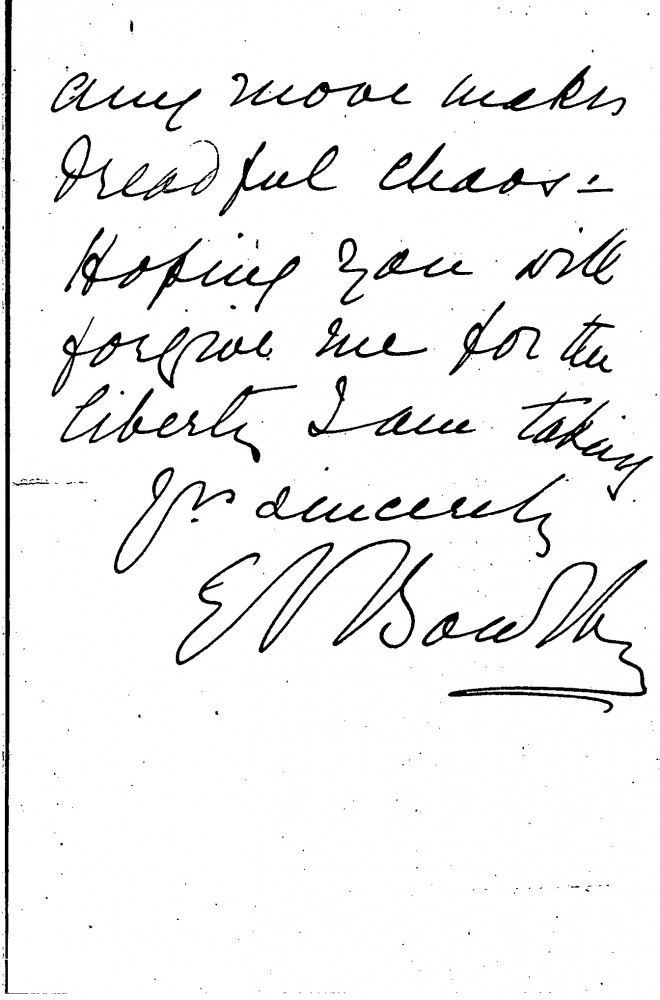 any move makes
dreadful chaos -
Hoping you will
forgive me for the
liberty I am taking
Yrs sincerely
E V Bowlby